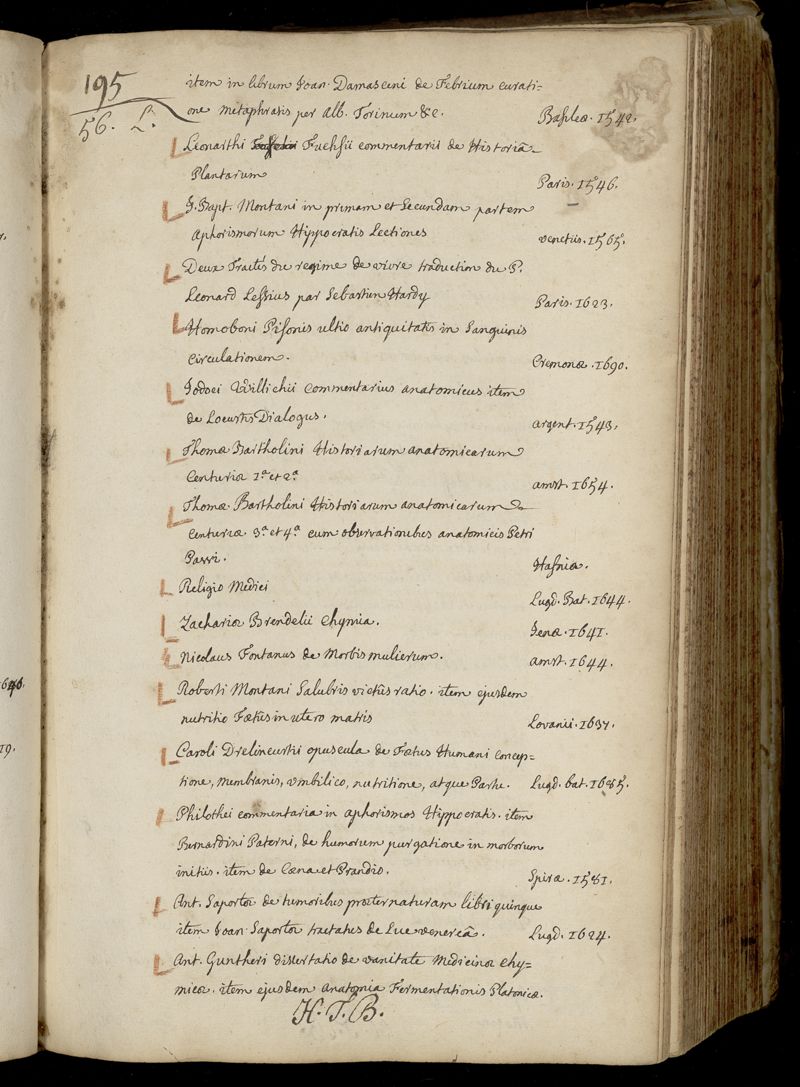 195
56. L.
item in librum Joan. Damasceni de Febrium curati-
one metaphrasis per Alb. Torinum &c. Basileæ. 1542.
Leonarthi Fuchsii commentarii de Historiâ
Plantarum Paris. 1546.
J. Bapt. Montani in primam et Secundam partem
aphorismorum Hippocratis Lectiones venetiis. 1565.
Deux Traités du regime de vivre traduction du P.
Leonard Lessius par Sebastien Hardy Paris. 1623.
Homoboni Pisonis ultio antiquitatis in Sanguinis
circulationem. Cremonæ. 1690.
Jodoci Willichii commentarius anatomicus item
de Locustis Dialogus. argent. 1543.
Thomæ Bartholini Historiarum anatomicarum
Centuriæ 1.a et 2.a amst. 1654.
Thomæ Bartholini Historiarum anatomicarum
centuriæ 3.a et 4.a cum observationibus anatomicis Petri
Pawi. Hafniæ.
Religio Medici Lugd. Bat. 1644.
Zachariæ Brendelii chymia. Jenæ. 1641.
Nicolaus Fontanus de Morbis mulierum. amst. 1644.
Roberti Montani Salubris victûs ratio. item ejusdem
nutritio Fœtûs in utero matris Lovanii. 1637.
Caroli Drelincurtii opuscula de Fœtus Humani concep=
tione, membranis, umbilico, nutritione, atque Partu. Lugd. bat. 1685.
Philothei commentaria in aphorismos Hippocratis. item
Bernardini Paterni, de humorum purgatione in morborum
initiis. item de Cæna et Prandio. Spiræ. 1581.
Ant. Saportæ de tumoribus præternaturam libri quinque
item Joan Saportæ tractatus de Lue venereâ. Lugd. 1624.
Ant. Guntheri dissertatio de vanitate Medicinæ chy=
micæ. item ejusdem anatomia Fermentationis Platonicæ.
H. T. B.
640.
19.